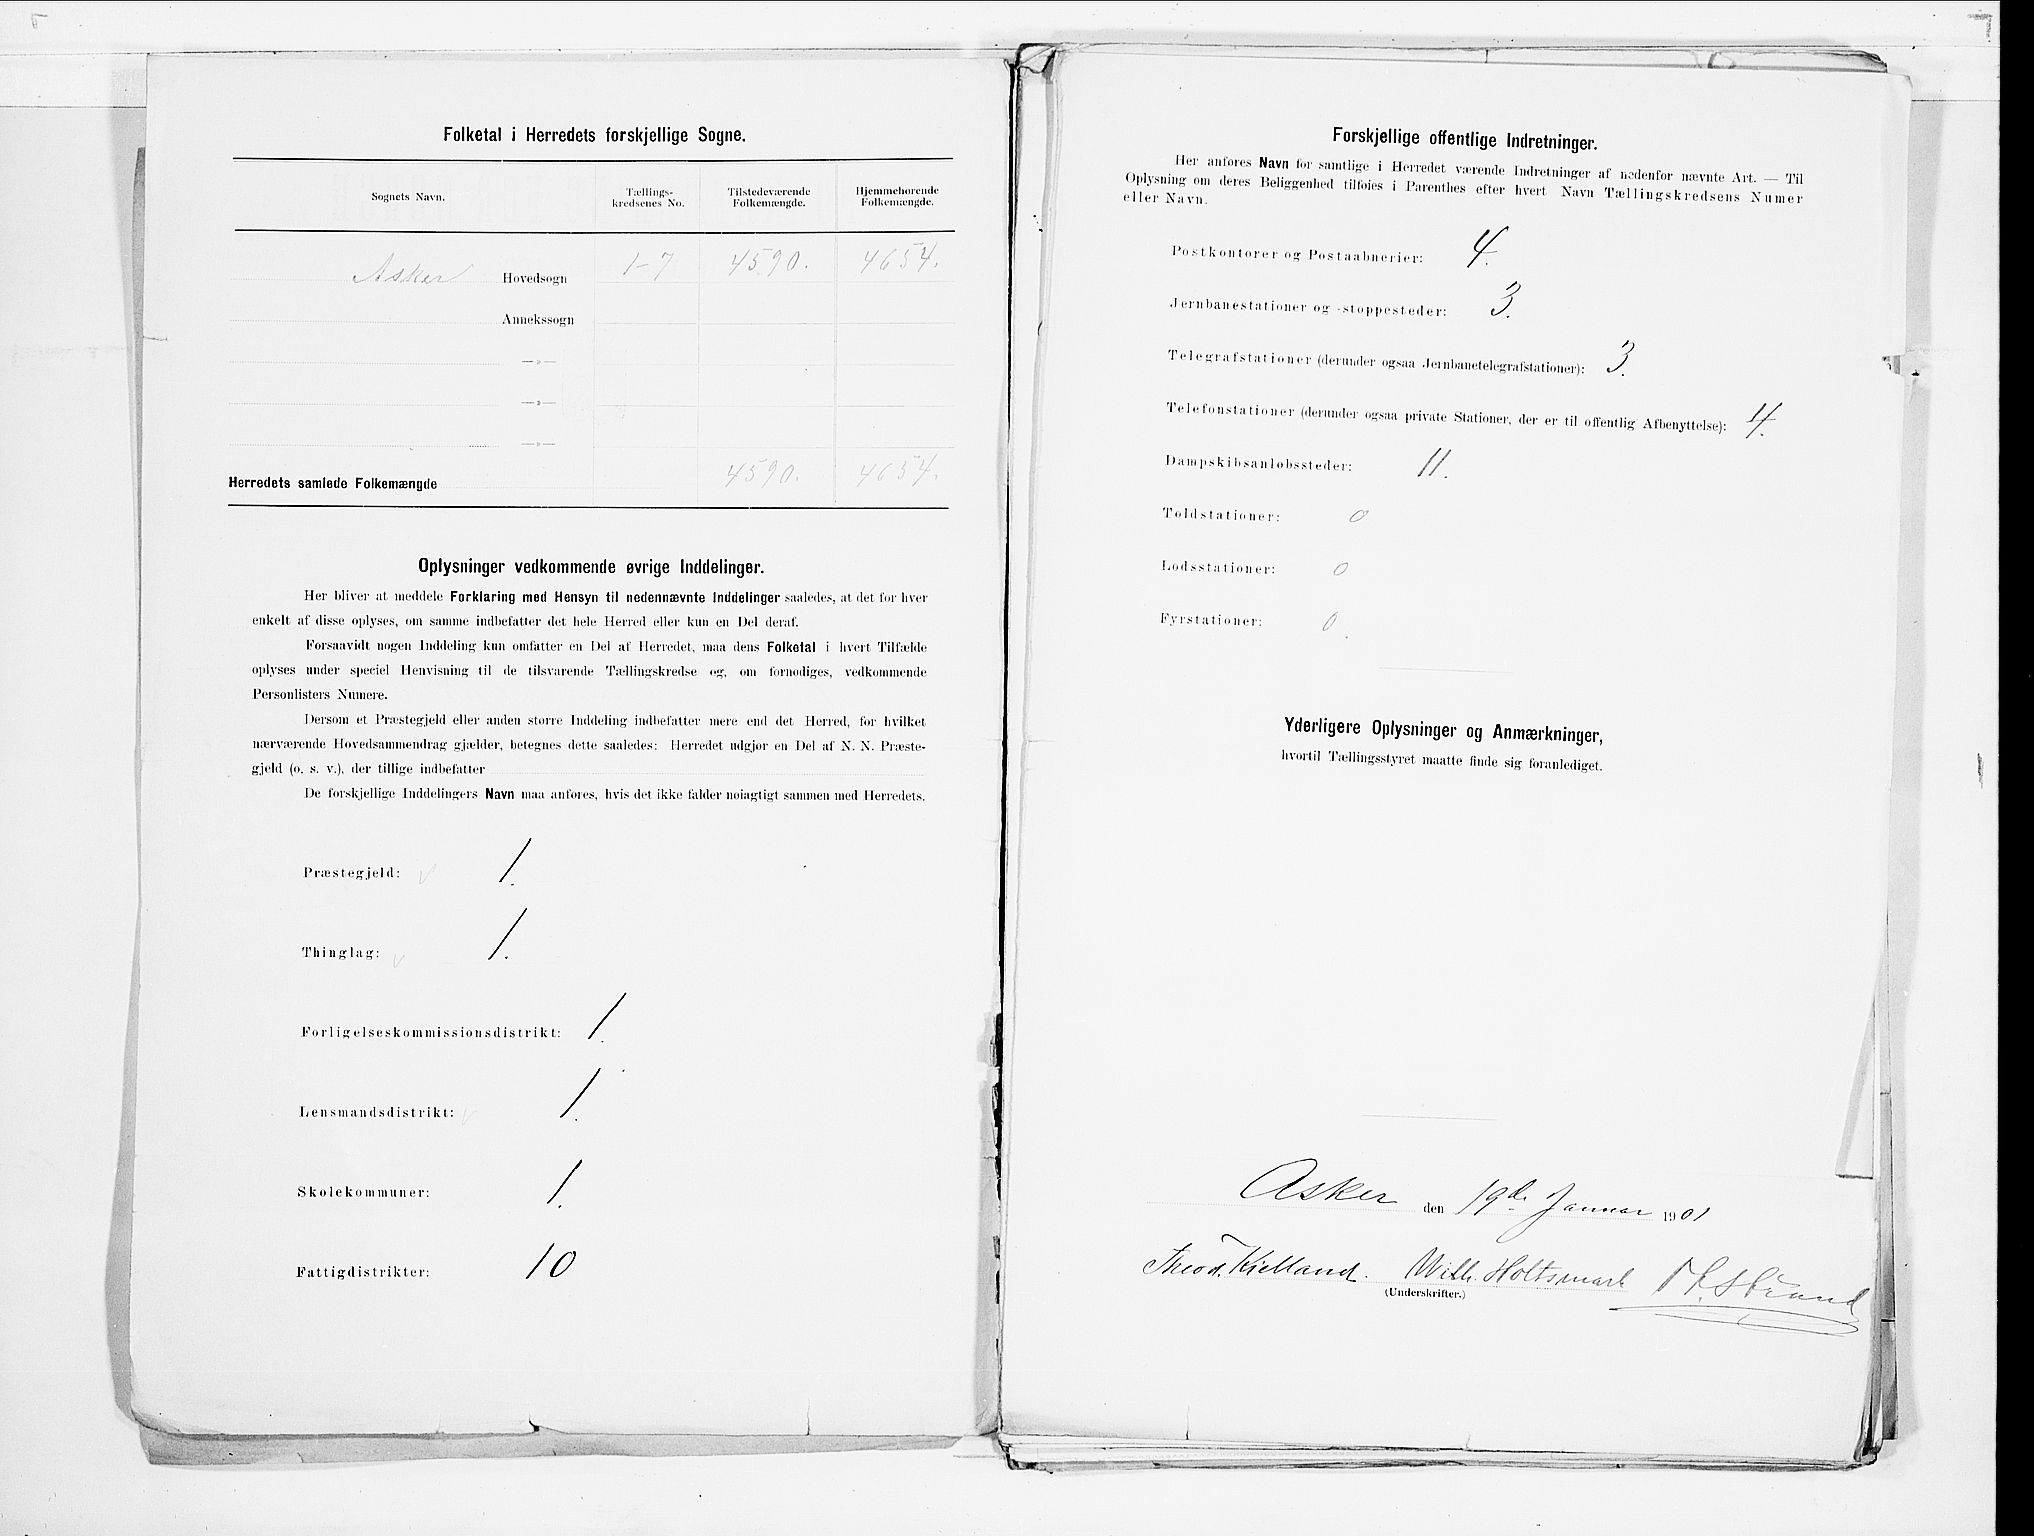 Folketal i Herredets forskjellige Sogne.
Sognets Navn.
Tællings-
kredsenes No.
Tilstedeværende
Folkemængde.
Hjemmehørende
Folkemængde.
Asker Hovedsogn 1-7 4590. 4654.
Annekssogn
—»—
—»—
—»—
Herredets samlede Folkemængde 4590. 4654.
Oplysninger vedkommende øvrige Inddelinger.
Her bliver at meddele Forklaring med Hensyn til nedennævnte Inddelinger saaledes, at det for hver
enkelt af disse oplyses, om samme indbefatter det hele Herred eller kun en Del deraf.
Forsaavidt nogen Inddeling kun omfatter en Del af Herredet, maa dens Folketal i hvert Tilfælde
oplyses under speciel Henvisning til de tilsvarende Tællingskredse og, om fornødiges, vedkommende
Personlisters Numere.
Dersom et Præstegjeld eller anden større Inddeling indbefatter mere end det Herred, for hvilket
nærværende Hovedsammendrag gjælder, betegnes dette saaledes: Herredet udgjør en Del af N. N. Præste-
gjeld (o. s. v.), der tillige indbefatter
De forskjellige Inddelingers Navn maa anføres, hvis det ikke falder nøiagtigt sammen med Herredets.
Præstegjeld: 1.
Thinglag: 1.
Forligelseskommissionsdistrikt: 1.
Lensmandsdistrikt: 1.
Skolekommuner: 1.
Fattigdistrikter: 10
Forskjellige offentlige Indretninger.
Her anføres Navn for samtlige i Herredet værende Indretninger af nedenfor nævnte Art. — Til
Oplysning om deres Beliggenhed tilføies i Parenthes efter hvert Navn Tællingskredsens Numer
eller Navn.
Postkontorer og Postaabnerier: 4.
Jernbanestationer og -stoppesteder: 3.
Telegrafstationer (derunder ogsaa Jernbanetelegrafstationer): 3.
Telefonstationer (derunder ogsaa private Stationer, der er til offentlig Afbenyttelse): 4.
Dampskibsanløbssteder: 11.
Toldstationer: 0
Lodsstationer: 0
Fyrstationer: 0.
Yderligere Oplysninger og Anmærkninger,
hvortil Tællingsstyret maatte finde sig foranlediget.
Asker den 19de Januar 1901
Theod. Kielland. Wilh. Holtsmark Strand
(Underskrifter.)